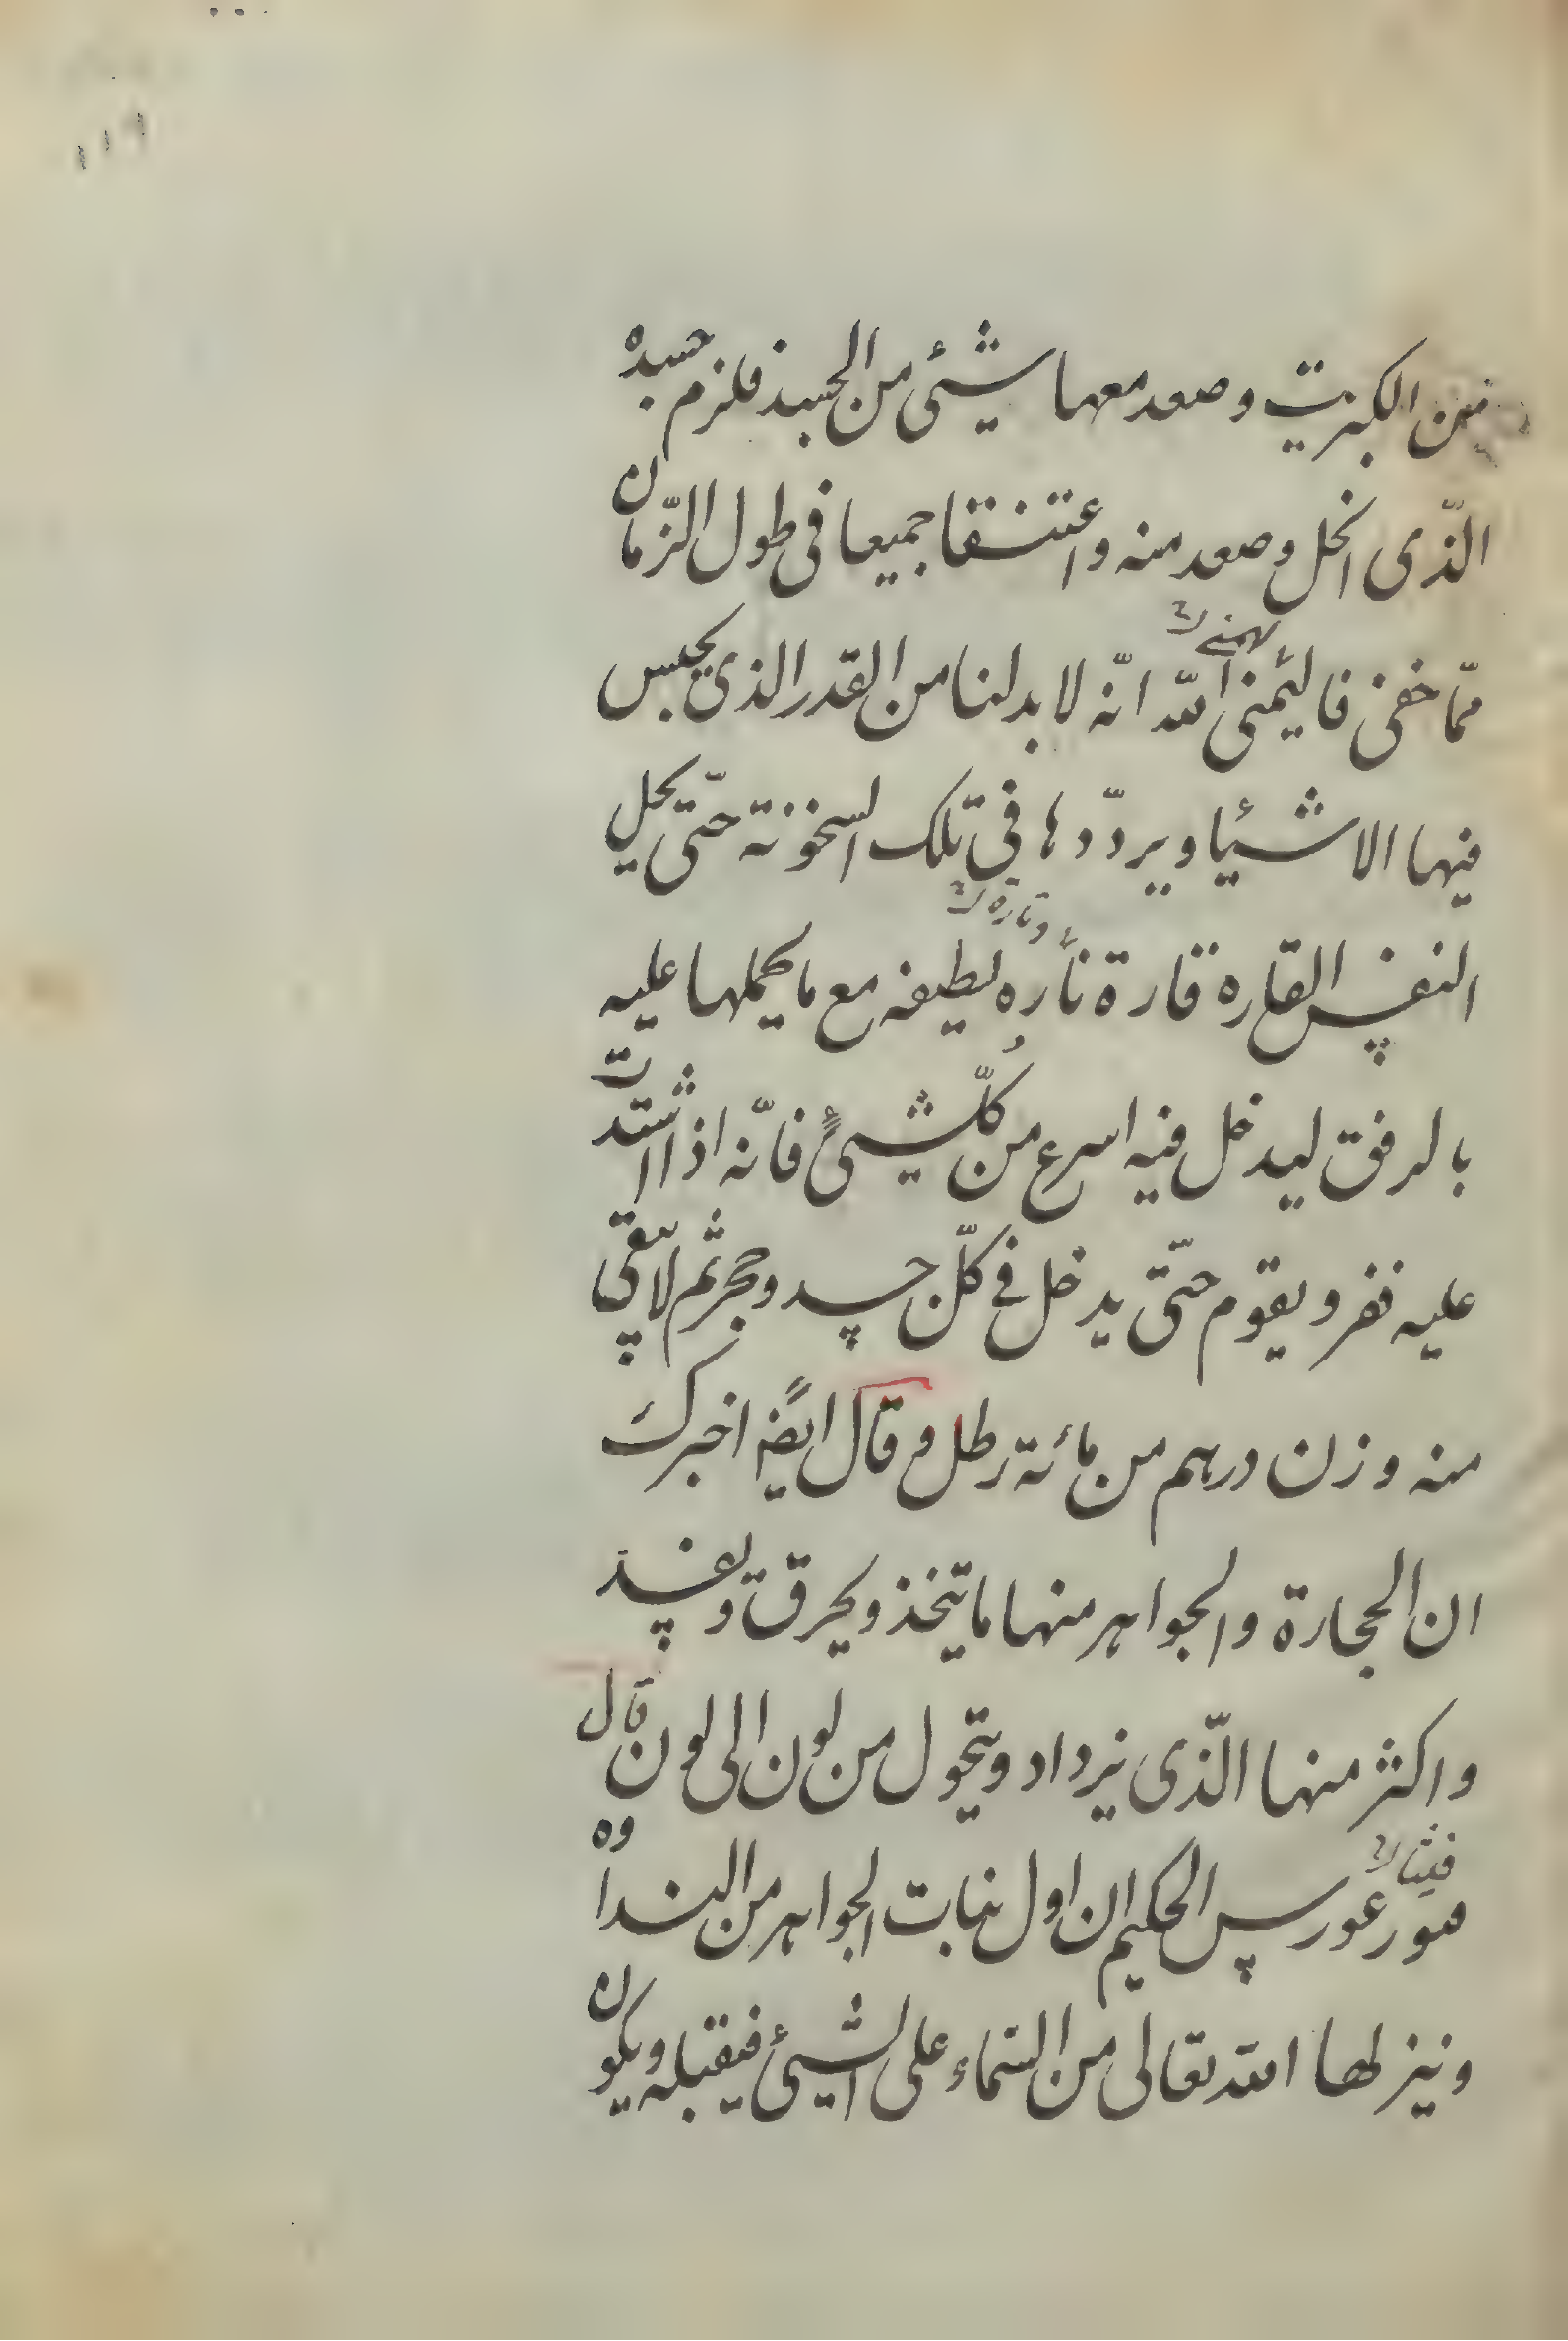 ١١٩
من الكبريت وصعد معها شئى من الجسد فلزم جسده
الّذى انحل وصعد منه واعتنقا جميعا فى طول الزّمان
يهمنى
ممّا خفى فاليثمنى اللّه انّه لا بد لنا من القدر الذى يحبس
فيها الاشئيا ويردّدها فى تلك السخونة حتّى يحل
وتارة
النفس القاره قارة ناره لطيفه مع ما يحملها عليه
بالرفق ليدخل فيه اسرع من كلّ شىءٍ فانّه اذا اشتدت
عليه نفر ويقوم حتّى يدخل فى كلّ جسد وحجر ثم لا يبقى
منه وزن درهم من مائة رطل وقال ايضًا اخبرك
ان الحجارة والجواهر منها ما يتخذ ويحرق ويفسد
واكثر منها الّذى يزداد ويتحول من لون الى لون قال
فيثا
فورغورس الحكيم ان اول نبات الجواهر من النداوه
وينزلها اللّه تعالى من السّماء على الشيئ فيقبله ويكون